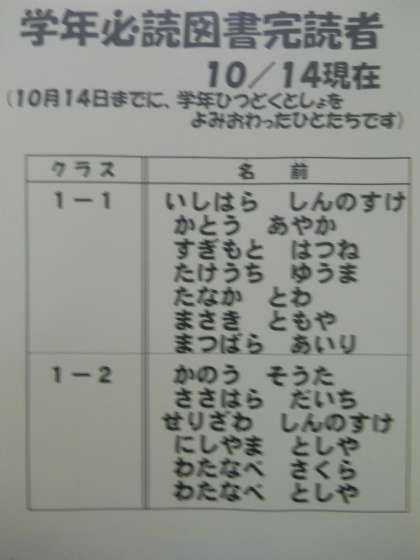 学年必読図書完読者
10／14現在
(10月14日までに、学年ひつどくとしょを
よみおわったひとたちです)
クラス 名 前
1－1 いしはら しんのすけ
かとう あやか
すぎもと はつね
たけうち ゆうま
たなか とわ
まさき ともや
まつばら あいり
1－2 かのう そうた
ささはら だいち
せりざわ しんのすけ
にしやま としや
わたなべ さくら
わたなべ としや